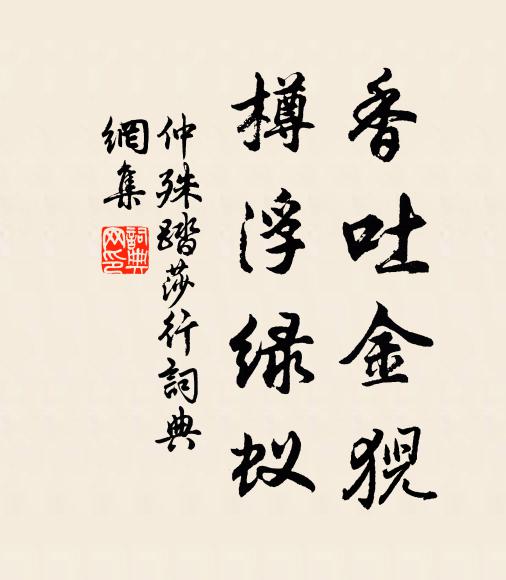 香吐金猊
樽浮绿蚁
仲殊踏莎行詞典
網集
詞典
网印